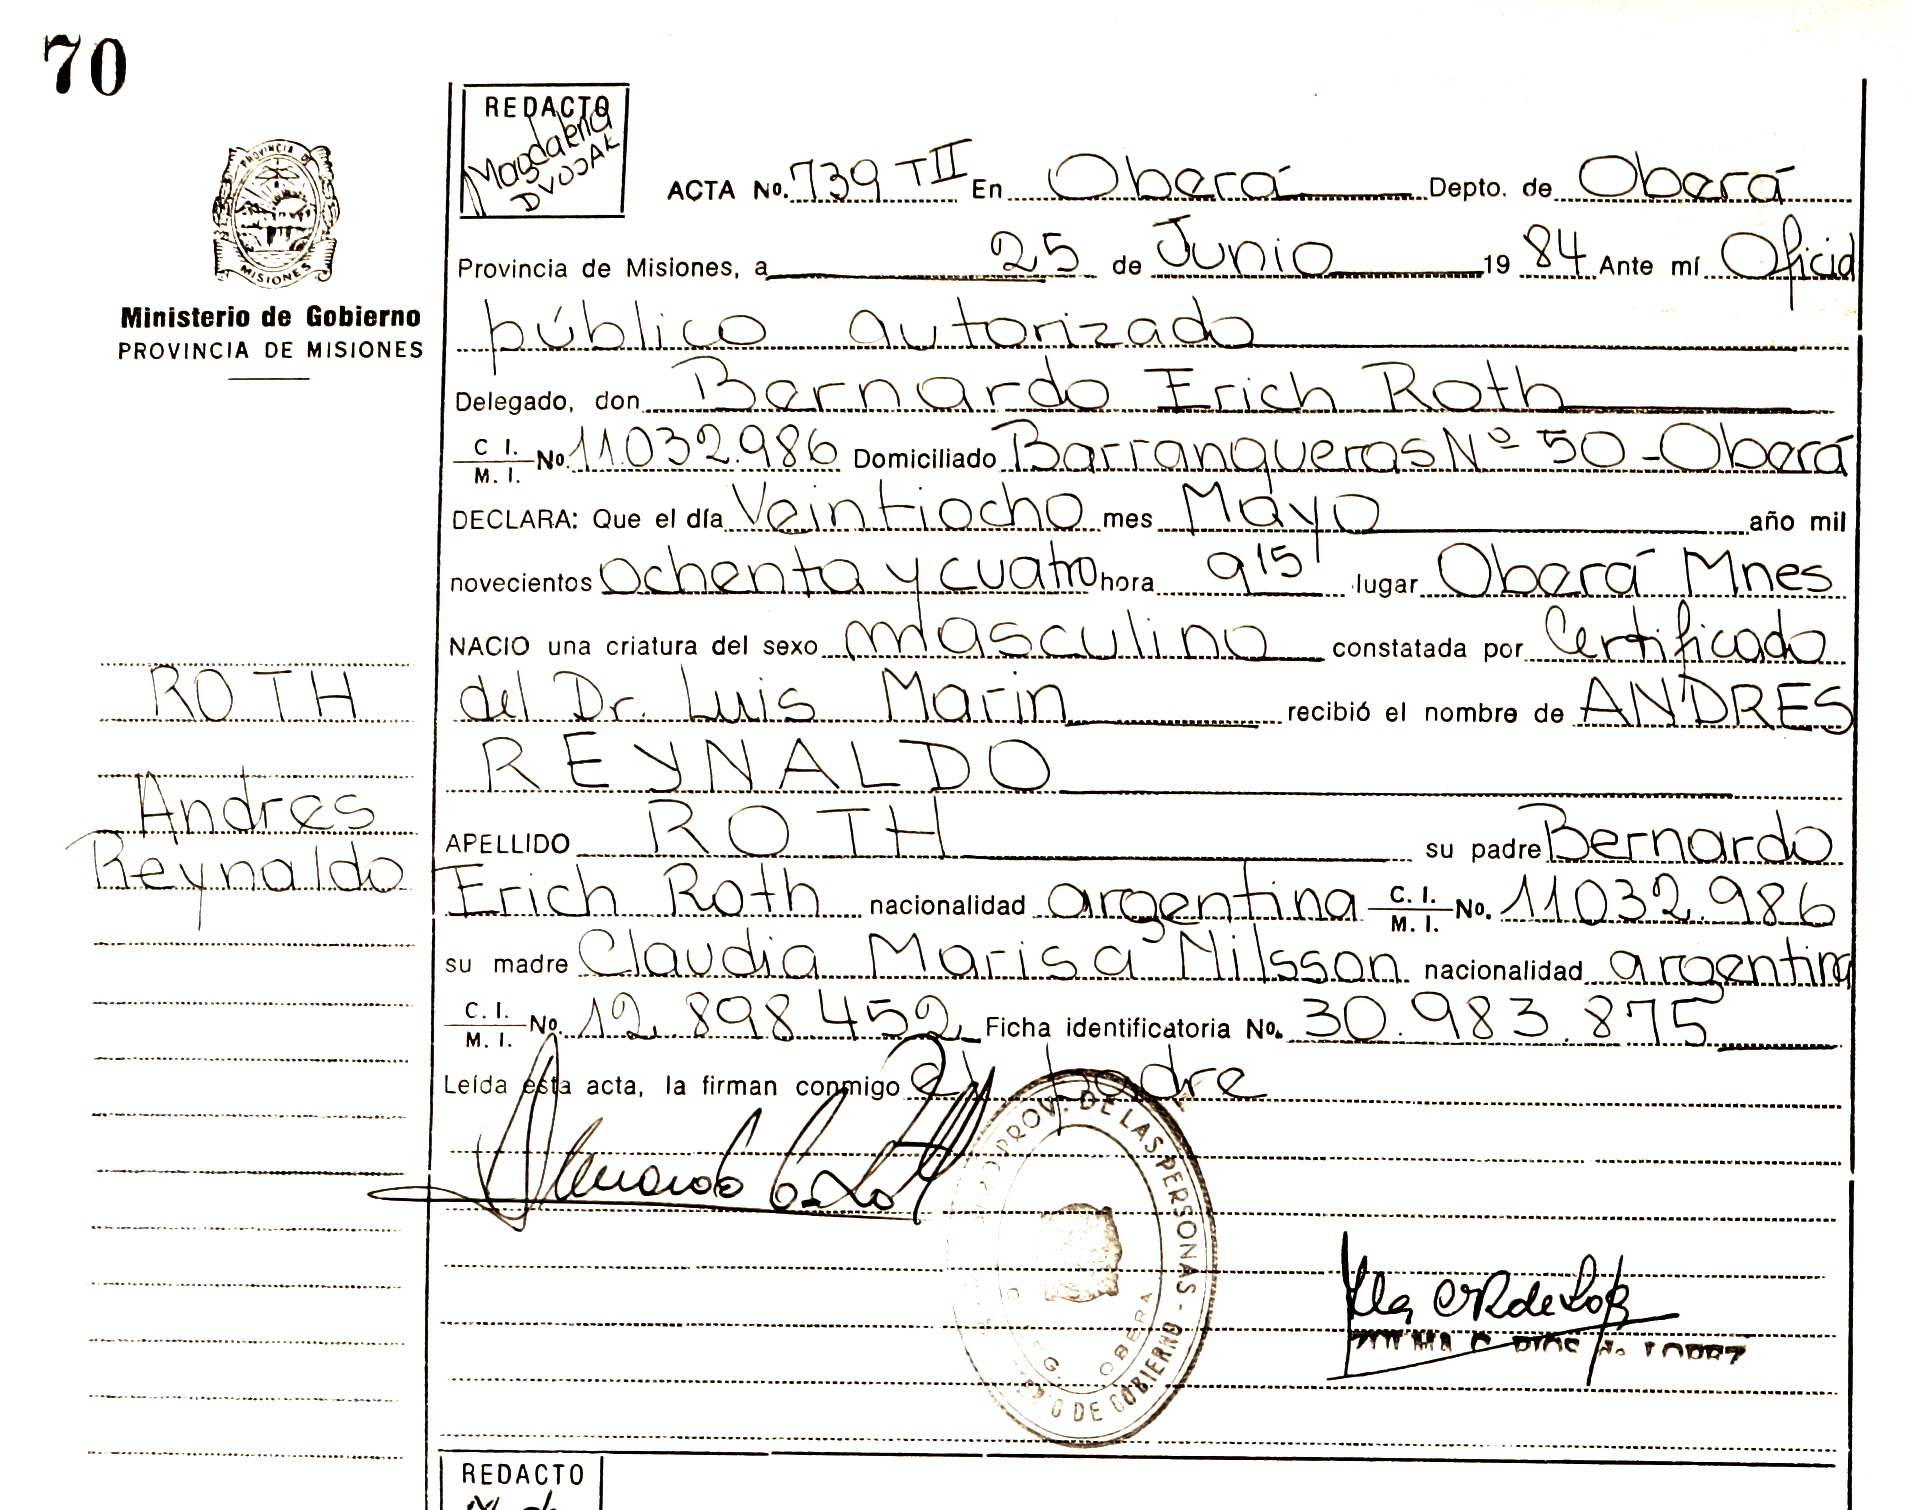 70
REDACTO
Magdalena
DVOJAK
ACTA No. 739 TII En Oberá Depto. de Oberá
PROVINCIA DE
MISIONES
Provincia de Misiones, a 25 de Junio 19 84 Ante mí Oficial
Ministerio de Gobierno
PROVINCIA DE MISIONES
público autorizado
Delegado, don Bernardo Erich Roth
C I. M. I. No. 11.032.986 Domiciliado Barranqueras Nº 50 - Oberá
DECLARA: Que el día Veintiocho mes Mayo año mil
novecientos ochenta y cuatro hora 9 15' lugar Oberá Mnes
NACIO una criatura del sexo masculino constatada por Certificado
ROTH
del Dr. Luis Marin recibió el nombre de ANDRES
REYNALDO
Andres
Reynaldo
APELLIDO ROTH su padre Bernardo
Erich Roth nacionalidad argentina C. I. M. I. No. 11.032.986
su madre Claudia Marisa Nilsson nacionalidad argentina
C. I. M. I. No. 12.898.452 Ficha identificatoria No. 30.983.875
Leída esta acta, la firman conmigo el padre
PROV. DE LAS PERSONAS - DE GOBIERNO
OBERA
REDACTO